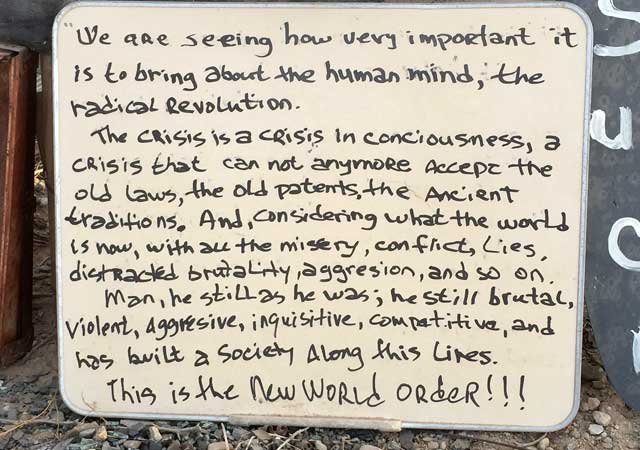 "We are seeing how very important it
is to bring about the human mind, the
radical Revolution.
The crisis is a crisis in conciousness, a
crisis that can not anymore accept the
old laws, the old patents, the Ancient
traditions. And, considering what the world
is now, with all the misery, conflict, Lies,
distracted brutality, aggresion, and so on.
Man, he still as he was; he still brutal,
violent, aggresive, inquisitive, competitive, and
has built a society Along this Lives.
This is the New World Order!!!